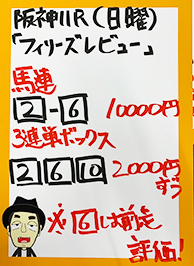 阪神11R(日曜)
「フィリーズレビュー」
馬連
2-6 10000円
3連単ボックス
2 6 10 2000円
ずつ
※6は前走
評価!